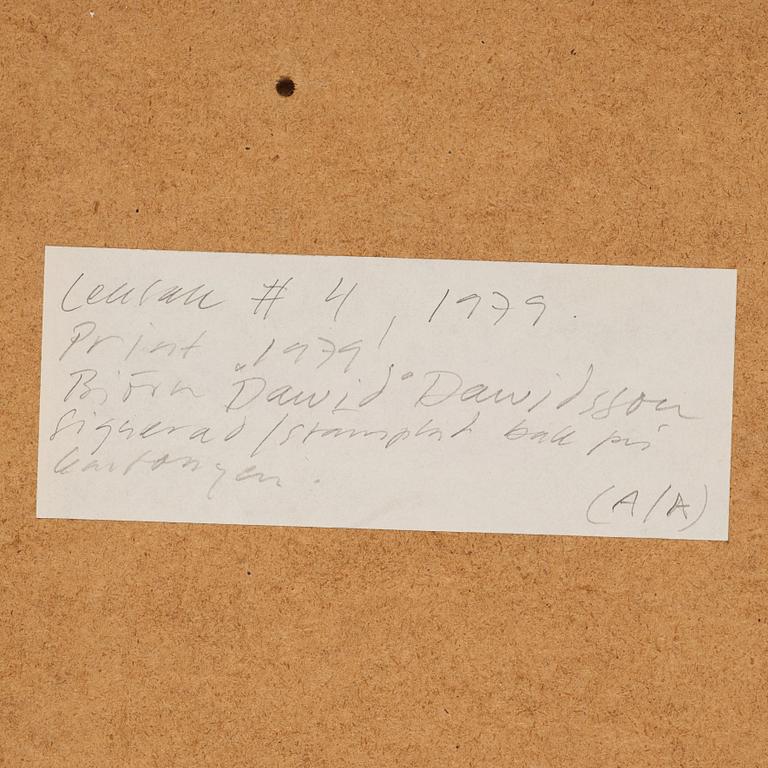 # 4, 1979.
Print 1979
Björn "Dawid" Dawidsson
Signerad/stamplad bak på
kartongen.
(A/A)